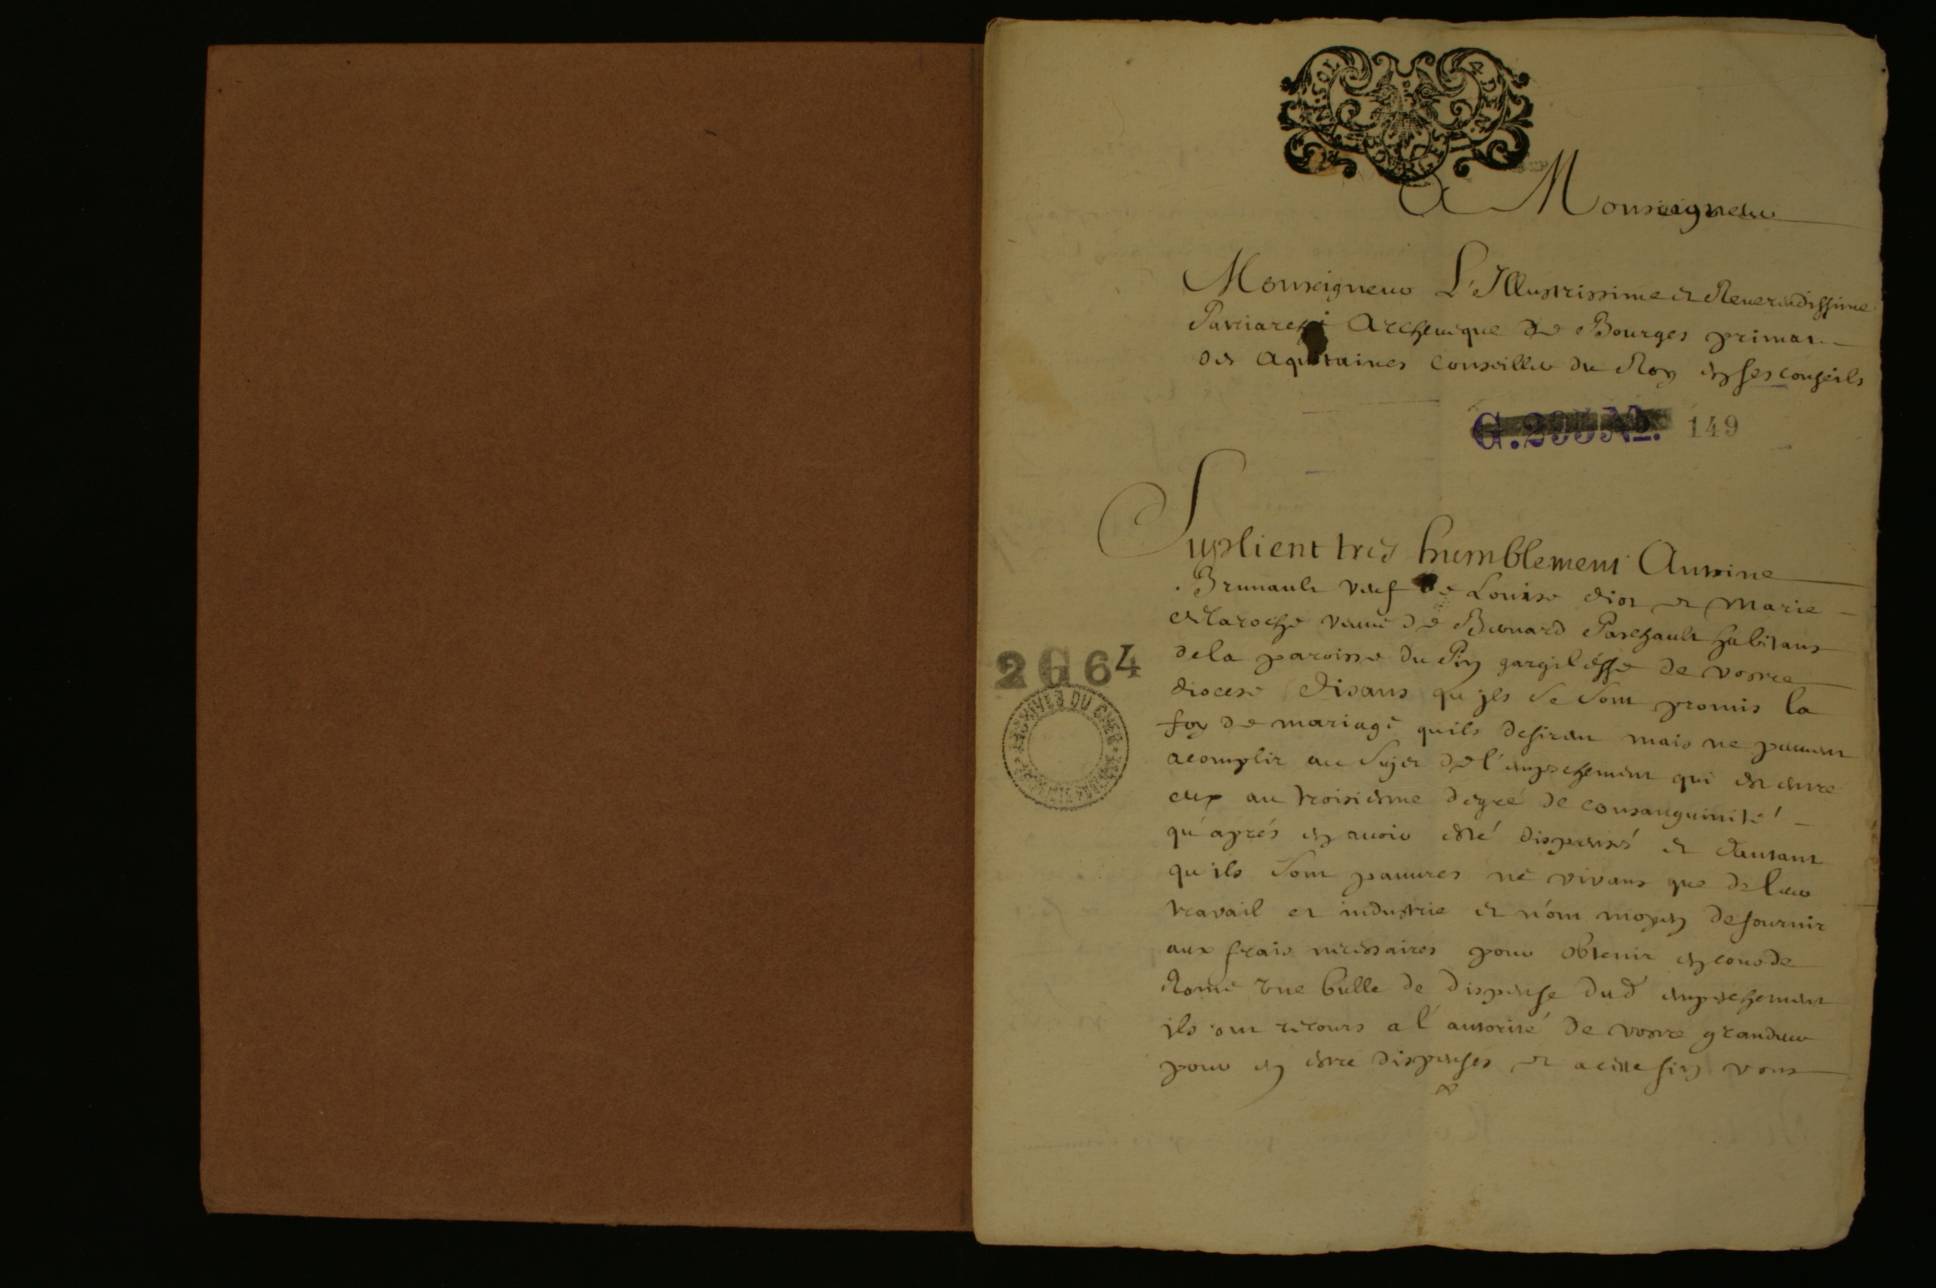 A Monseigneur
Monseigneur L'Illustrissime et Reuerendissime
Patriarche Archeuêque de Bourges primat
des Aquitaines Conseiller du Roy en ses conseils
G.295 No. 149
Suplient tres humblement Antoine
Brunault veuf de Louise et Marie
Delaroche veuue de Bernard Paschault habitans
de la paroisse du Pin gargilesse de vostre
diocese Disans qu'jls se sont promis la
foy de mariage qu'ils desirent mais ne peuuent
acomplir au sujet de l'empechement qui est entre
eux au troisieme degré de consanguinité
qu'aprés en auoir esté dispensés et d'autant
qu'ils sont pauures ne vivans que de leur
travail et industrie et n'ont moyen de fournir
aux frais necessaires pour obtenir en cour de
Rome vne bulle de dispense dud empechement
jls ont recours a l'autorité de vostre grandeur
pour en estre dispenses et a cette fin vous
2 G 64
ARCHIVES DU CHER